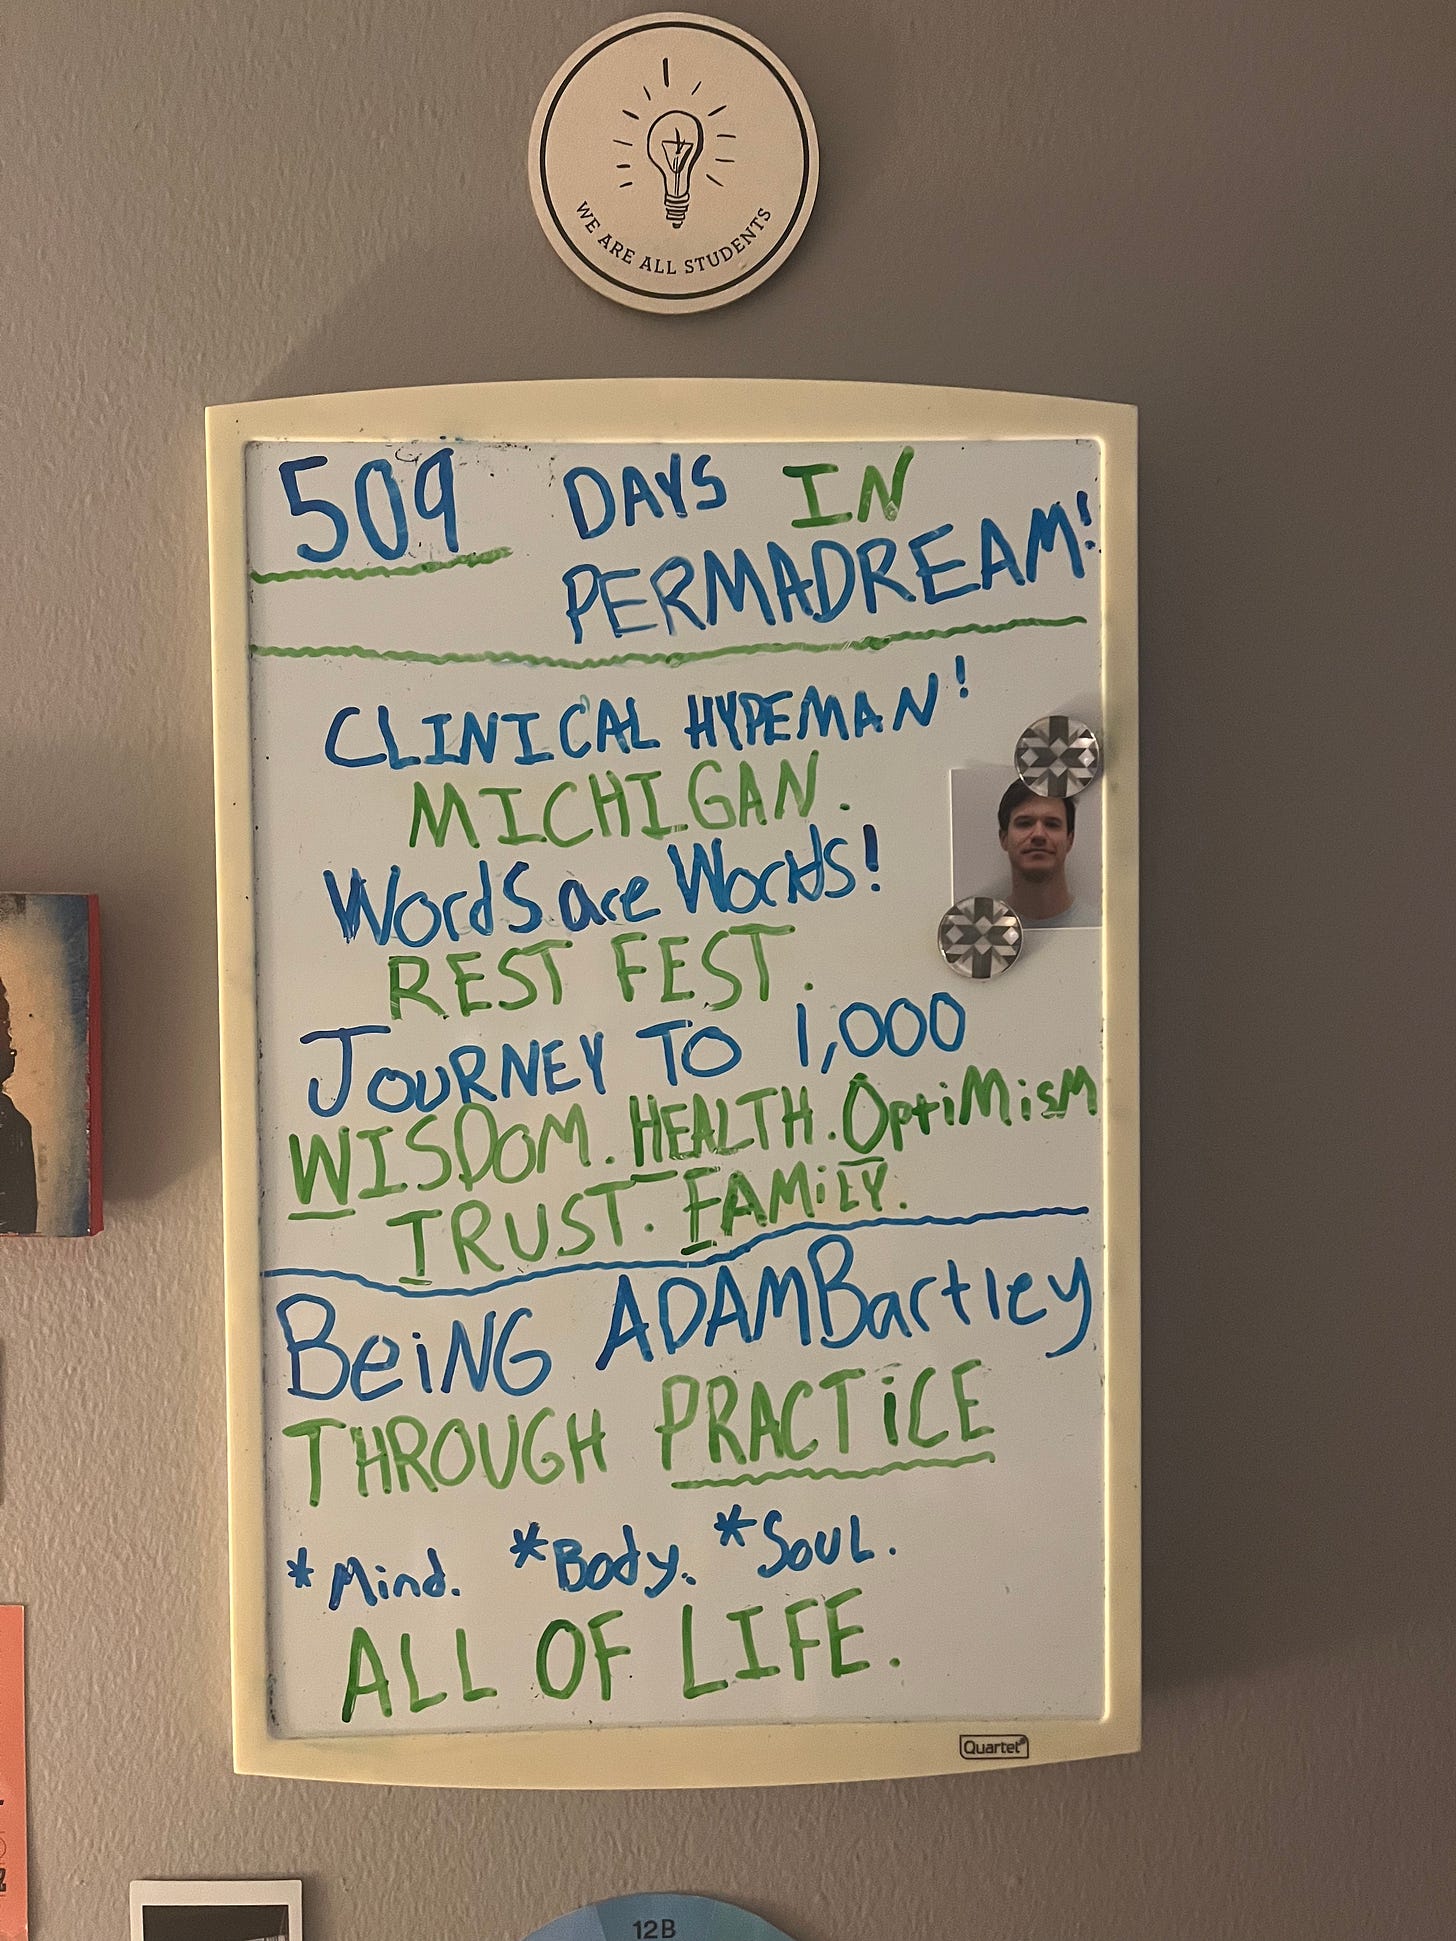 WE ARE ALL STUDENTS
509 DAYS IN
PERMADREAM!
CLINICAL HYPEMAN!
MICHIGAN.
Words are Worlds!
REST FEST.
JOURNEY TO 1,000
WISDOM. HEALTH. OptiMisM
TRUST. FAMiLY.
BeiNG ADAMBartley
THROUGH PRACTiCE
*Mind. *Body. *SOUL.
ALL OF LIFE.
Quartet®
12B